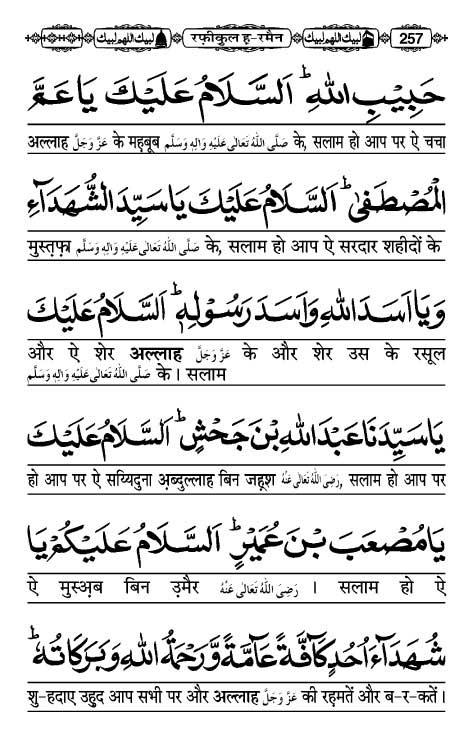 لبيك اللهم لبيك रफ़ीकुल ह-रमैन لبيك اللهم لبيك 257
حَبِيْبِ اللّٰهِ ؕ اَلسَّلَامُ عَلَيْكَ يَا عَمَّ
अल्लाह عَزَّ وَجَلَّ के महबूब صَلَّى اللّٰهُ تَعَالٰى عَلَيْهِ وَاٰلِهٖ وَسَلَّم के, सलाम हो आप पर ऐ चचा
الْمُصْطَفٰى ؕ اَلسَّلَامُ عَلَيْكَ يَا سَيِّدَ الشُّهَدَآءِ
मुस्त़फ़ा صَلَّى اللّٰهُ تَعَالٰى عَلَيْهِ وَاٰلِهٖ وَسَلَّم के, सलाम हो आप ऐ सरदार शहीदों के
وَيَا اَسَدَ اللّٰهِ وَاَسَدَ رَسُوْلِهٖ ؕ اَلسَّلَامُ عَلَيْكَ
और ऐ शेर अल्लाह عَزَّ وَجَلَّ के और शेर उस के रसूल
صَلَّى اللّٰهُ تَعَالٰى عَلَيْهِ وَاٰلِهٖ وَسَلَّم के। सलाम
يَا سَيِّدَنَا عَبْدَ اللّٰهِ بْنَ جَحْشٍ ؕ اَلسَّلَامُ عَلَيْكَ
हो आप पर ऐ सय्यिदुना अ़ब्दुल्लाह बिन जह़्श رَضِىَ اللّٰهُ تَعَالٰى عَنْهُ, सलाम हो आप पर
يَا مُصْعَبَ بْنَ عُمَيْرٍ ؕ اَلسَّلَامُ عَلَيْكُمْ يَا
ऐ मुस्अ़ब बिन उ़मैर رَضِىَ اللّٰهُ تَعَالٰى عَنْهُ । सलाम हो ऐ
شُهَدَآءَ اُحُدٍ كَآفَّةً عَآمَّةً وَّرَحْمَةُ اللّٰهِ وَبَرَكَاتُهٗ ؕ
शु-हदाए उहुद आप सभी पर और अल्लाह عَزَّ وَجَلَّ की रह़मतें और ब-र-कतें।